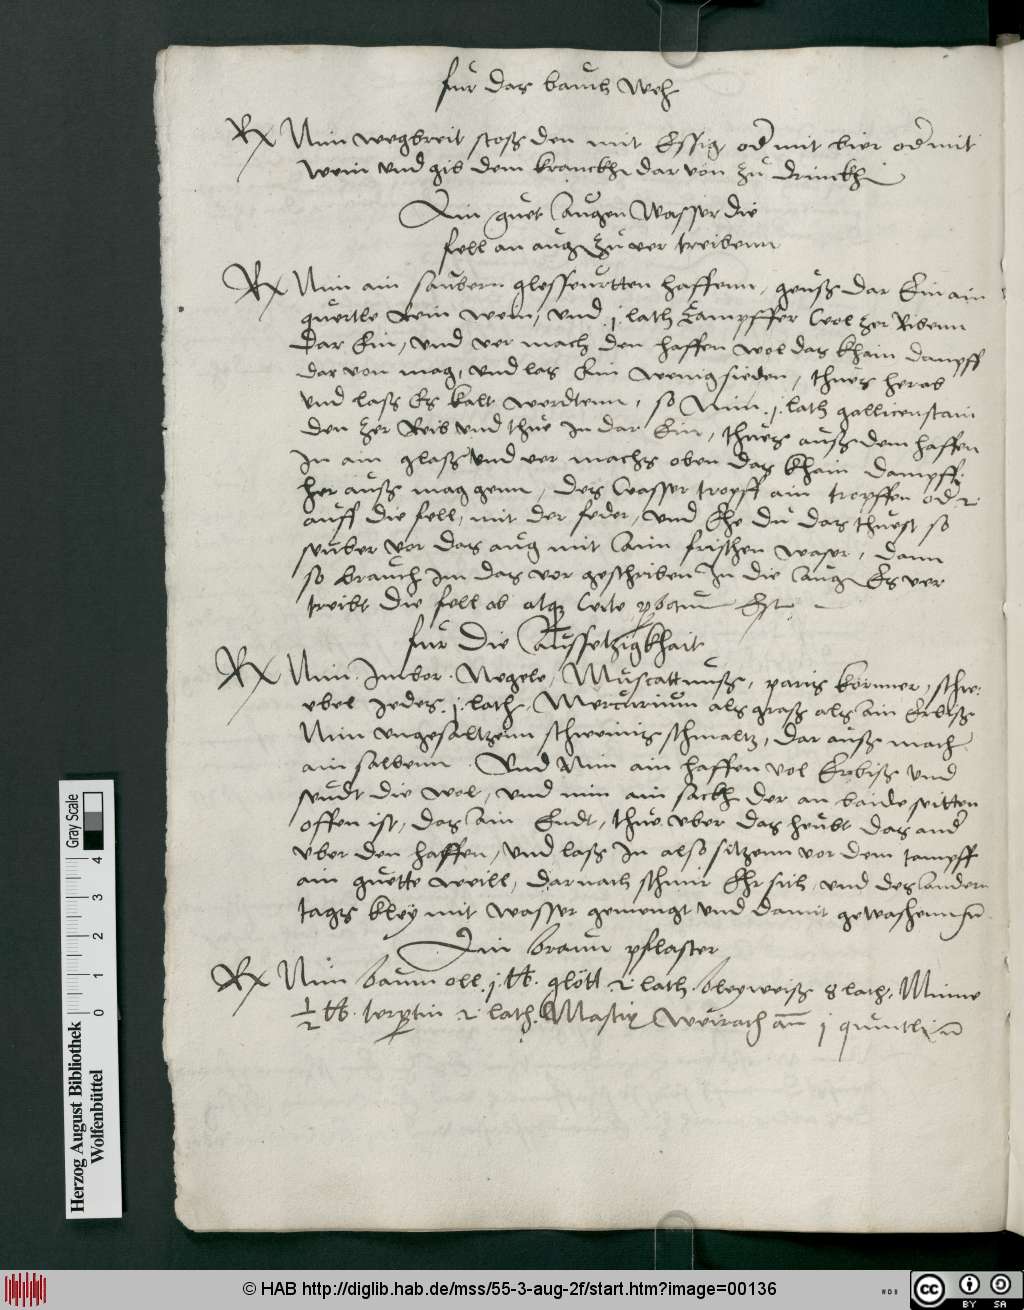 fur das bauch weh
Rx Nim wegbreit stoss den mit Essig od mit bier od mit
wein vnd gib dem kranckh dar von zu drinckh
Ain guet Augen Wasser die
fell an aug zu ver treibenn
Rx Nim ain saubern glessurtten haffenn, geuß dar Ein ain
quertle Rein wein, vnd .j. lath Campffer wol zer Ribenn
dar Ein, vnd ver mach den haffen wol das khain dampff
dar von mag, vnd las Ein wenig sieden, thues herab
vnd lass Es kalt werdtenn, so Nim .j. lath gallicenstain
den zer Reib vnd thue In dar Ein, thues auß dem haffen
In ain glass vnd ver machs oben das khain dampff
her auß mag genn, des wasser tropff ain tropffen od 2
auff die fell, mit der feder, vnd Ehe du das thuest so
seuber vor das aug mit aim frischen waser, dann
so brauch im das vor geschriben In die Aug Es ver
treibt die fell ab Est
fur die Aussetzigkhait
Rx Nim Imber. Negele, Muscattnuß, paris körnner, schw:
ebel Jedes .j. lath, Mercurium als groß als ain Erbiß
Nim vngesaltzenn schweinis schmaltz, dar auß mach
ain salbenn. Vnd Nim ain haffen vol Erbiß vnd
seudt die wol, vnd nim ain sackh der an baide seitten
offen ist, das ain Endt, thue vber das heubt das and
vber den haffen, vnd lass In also sitzenn vor dem tampff
ain guette weill, darnach schmir Ehr sich, vnd des andern
tags kley mit wasser gemengt vnd damit gewashenn
Ain braun pflaster
Rx Nim baum oll .j. lb. glött 2 lath bleyweiß 8 lath, Minie
1/2 lb. terpetin 2 lath. Mastix Weirach an j quintl
Herzog August Bibliothek
Wolfenbüttel
0 1 2 3 4
Gray Scale
© HAB http://diglib.hab.de/mss/55-3-aug-2f/start.htm?image=00136
cc BY SA